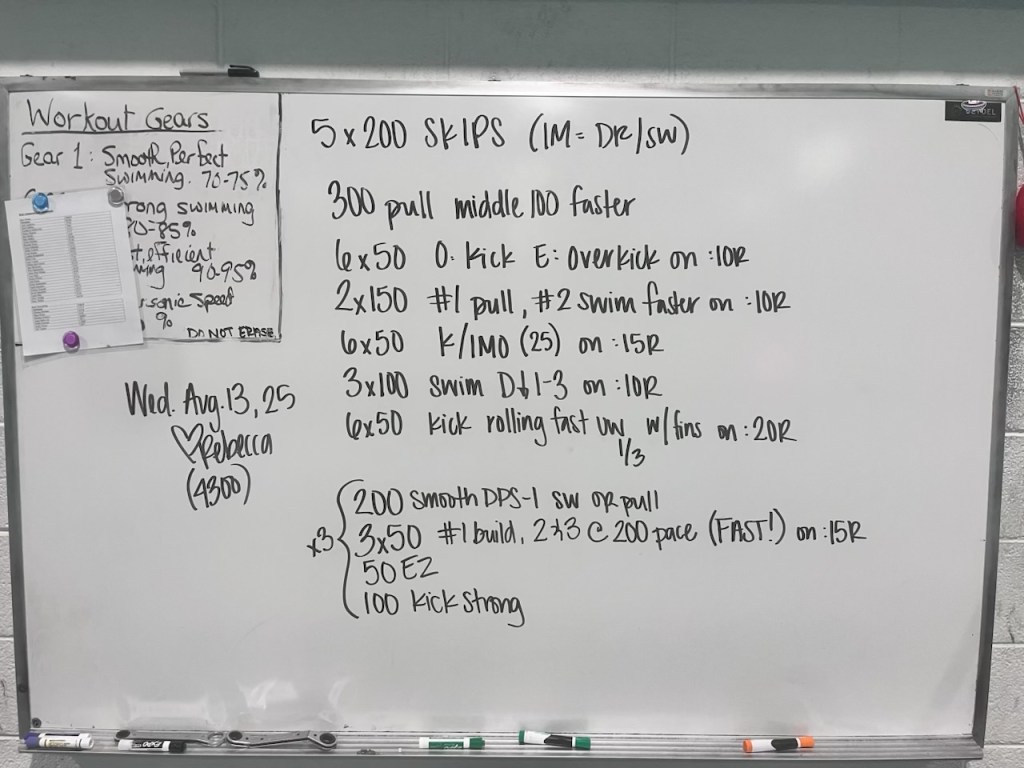 Workout Gears
Gear 1: Smooth, Perfect
Swimming. 70-75%
rong swimming
0-85%
t, efficient
ming 90-95%
rsonic Speed
%
DO NOT ERASE
Wed. Aug. 13, 25
♡Rebecca
(4300)
5 x 200 SKIPS (IM = DR/SW)
300 pull middle 100 faster
6x50 O: Kick E: Overkick on :10R
2x150 #1 pull, #2 swim faster on :10R
6x50 K/IMO (25) on :15R
3x100 swim D↓1-3 on :10R
6x50 kick rolling fast UW w/fins on :20R
1/3
200 smooth DPS-1 sw or pull
x3 3x50 #1 build, 2&3 @ 200 pace (FAST!) on :15R
50 EZ
100 Kick Strong
EXPO